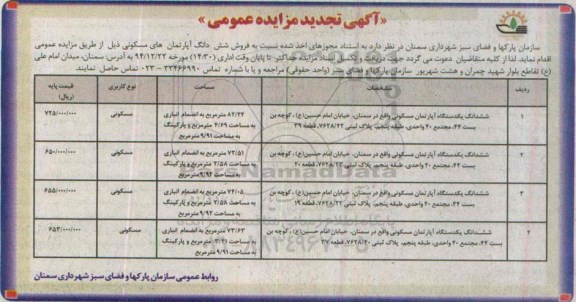 «آگهی تجدید مزایده عمومی»
سازمان پارکها و فضای سبز شهرداری سمنان در نظر دارد به استناد مجوزهای اخذ شده نسبت به فروش شش دانگ آپارتمان های مسکونی ذیل از طریق مزایده عمومی
اقدام نماید. لذا از کلیه متقاضیان دعوت می گردد جهت دریافت و تکمیل اسناد مزایده حداکثر تا پایان وقت اداری (۱۴:۳۰) مورخه ۹۴/۱۲/۲۲ به آدرس سمنان، میدان امام علی
(ع) تقاطع بلوار شهید چمران و هشت شهریور سازمان پارکها و فضای سبز (واحد حقوقی) مراجعه و یا با شماره تماس ۳۳۴۶۶۹۹۰ - ۰۲۳ تماس حاصل نمایند.
ردیف مشخصات مساحت نوع کاربری قیمت پایه
(ریال)
۱ ششدانگ یکدستگاه آپارتمان مسکونی واقع در سمنان، خیابان امام حسین(ع)، کوچه بن
بست ۴۴، مجتمع ۲۰ واحدی، طبقه پنجم، پلاک ثبتی ۷۶۲۸/۴۲، قطعه ۳۹
۸۲/۲۴ مترمربع به انضمام انباری
به مساحت ۴/۶۹ مترمربع و پارکینگ
به مساحت ۹/۹۱ مترمربع
مسکونی ۷۲۵/۰۰۰/۰۰۰
۲ ششدانگ یکدستگاه آپارتمان مسکونی واقع در سمنان، خیابان امام حسین(ع)، کوچه بن
بست ۴۴، مجتمع ۲۰ واحدی، طبقه پنجم، پلاک ثبتی ۷۶۲۸/۲۳، قطعه ۲۰
۷۳/۵۱ مترمربع به انضمام انباری
به مساحت ۲/۵۸ مترمربع و پارکینگ
به مساحت ۹/۹۴ مترمربع
مسکونی ۶۵۰/۰۰۰/۰۰۰
۳ ششدانگ یکدستگاه آپارتمان مسکونی واقع در سمنان، خیابان امام حسین(ع)، کوچه بن
بست ۴۴، مجتمع ۲۰ واحدی، طبقه پنجم، پلاک ثبتی ۷۶۲۸/۲۲، قطعه ۱۹
۷۴/۰۵ مترمربع به انضمام انباری
به مساحت ۲/۵۸ مترمربع و پارکینگ
به مساحت ۹/۹۴ مترمربع
مسکونی ۶۵۵/۰۰۰/۰۰۰
۴ ششدانگ یکدستگاه آپارتمان مسکونی واقع در سمنان، خیابان امام حسین(ع)، کوچه بن
بست ۴۴، مجتمع ۲۰ واحدی، طبقه پنجم، پلاک ثبتی ۷۶۲۸/۴۰، قطعه ۳۷
۷۳/۶۳ مترمربع به انضمام انباری
به مساحت مترمربع و پارکینگ
به مساحت ۹/۹۱ مترمربع
مسکونی ۶۵۳/۰۰۰/۰۰۰
روابط عمومی سازمان پارکها و فضای سبز شهرداری سمنان